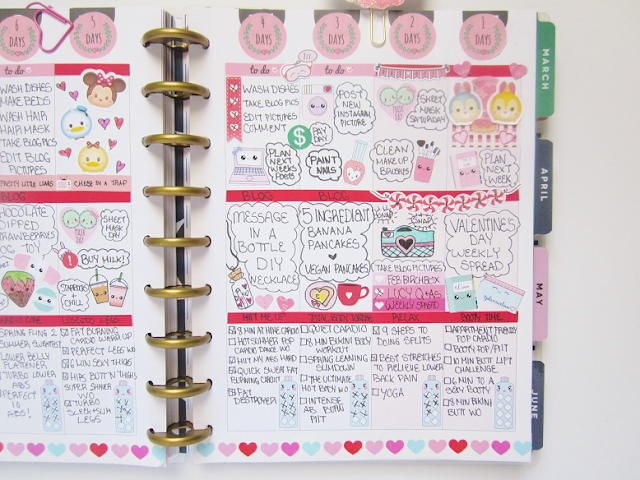 6
DAYS
5
DAYS
WASH DISHES
MAKE BEDS
WASH HAIR
HAIR MASK
TAKE BLOG PICS
EDIT BLOG
PICTURES
PRETTY LITTLE LIARS
CHEESE IN A TRAP
BLOG
CHOCOLATE
DIPPED
STRAWBERRIES
DOG TOY
SHEET
MASK
DAY
BUY MILK!
STARBUCKS
+ CHILL
LESLIE'S LEGS
FAT BURNING
CARDIO WARM UP
PERFECT LEGS WO
6 MIN SEXY THIGHS
HIPS, BUTT N THIGHS
SUPER SHAPER
WO
TURBO
SLEEK + SLIM
LEGS
LOWER BELLY
FLATTENER
TURBO LOWER
ABS
PERFECT
ABS!
4
DAYS
3
DAYS
2
DAYS
1
DAYS
to do
to do
WASH DISHES
TAKE BLOG PICS
EDIT PICTURES
COMMENT
POST
NEW
INSTAGRAM
PICTURE
PAY
DAY
SHEET
MASK
SATURDAY
PLAN
NEXT
WEEKS
POSTS
PAINT
NAILS
CLEAN
MAKE UP
BRUSHES
PLAN
NEXT
WEEK
BLOG
BLOG
MESSAGE
IN A
BOTTLE
DIY
NECKLACE
5 INGREDIENT
BANANA
PANCAKES
+
VEGAN PANCAKES
SNAP
SNAP
TAKE BLOG PICTURES
FEB BIRCHBOX
LUCY Q+AS
WEEKLY SPREAD
VALENTINE'S
DAY
WEEKLY
SPREAD
HIIT ME UP
TOTAL BODY TORNADO
RELAX
BOOTY TIME
8 MIN AT HOME CARDIO
HOT SUMMER POP
CARDIO DANCE WO
HIIT MY ABS HARD
QUICK SUPER FAT
BURNING CIRCUIT
FAT
DESTROYER
QUIET CARDIO
8 MIN BIKINI BODY
WORKOUT
SPRING LEANING
SLIMDOWN
THE ULTIMATE
HOT BODY WO
INTENSE
AB BURN
PIIT
9 STEPS TO
DOING SPLITS
BEST STRETCHES
TO RELIEVE LOWER
BACK PAIN
YOGA
APARTMENT FRIENDLY
POP CARDIO
BOOTY POP/PIIT
10 MIN BUTT LIFT
CHALLENGE
6 MIN TO A
SEXY BOOTY
8 MIN BIKINI
BUTT WO
MARCH
APRIL
MAY
JUNE